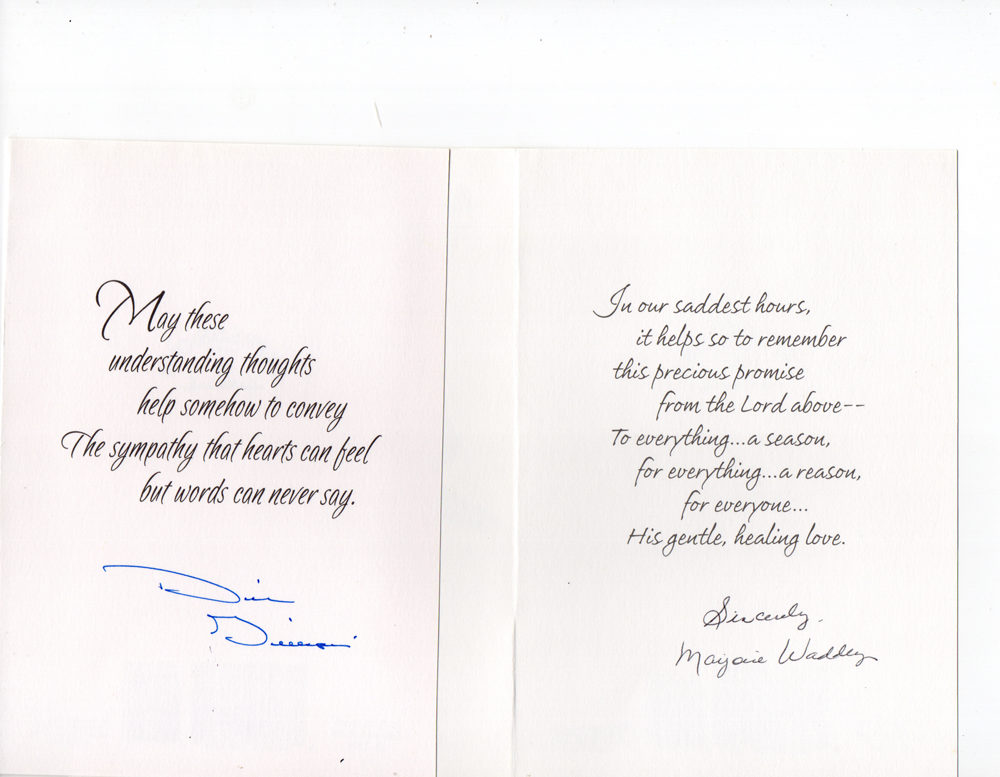 May these
understanding thoughts
help somehow to convey
The sympathy that hearts can feel
but words can never say.
In our saddest hours,
it helps so to remember
this precious promise
from the Lord above--
To everything...a season,
for everything...a reason,
for everyone...
His gentle, healing love.
Sincerely,
Marjorie Waddey